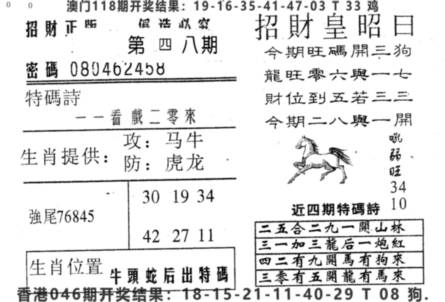 澳门118期开奖结果：19-16-35-41-47-03 T 33 鸡
招財正版
第四八期
密碼 080462458
特碼詩
一一看戲二零來
生肖提供：
攻：马牛
防：虎龙
強尾76845
30 19 34
42 27 11
生肖位置
牛頭蛇后出特碼
招財皇昭日
今期旺碼開三狗
龍旺零六與一七
財位到五若三三
今期二八與一開
旺
34
10
近四期特碼詩
二五合二九一開山林
三一加三龍后一炮紅
四二有九開馬有狗來
三零有五開龍有馬來
香港046期开奖结果：18-15-21-11-40-29 T 08 狗.